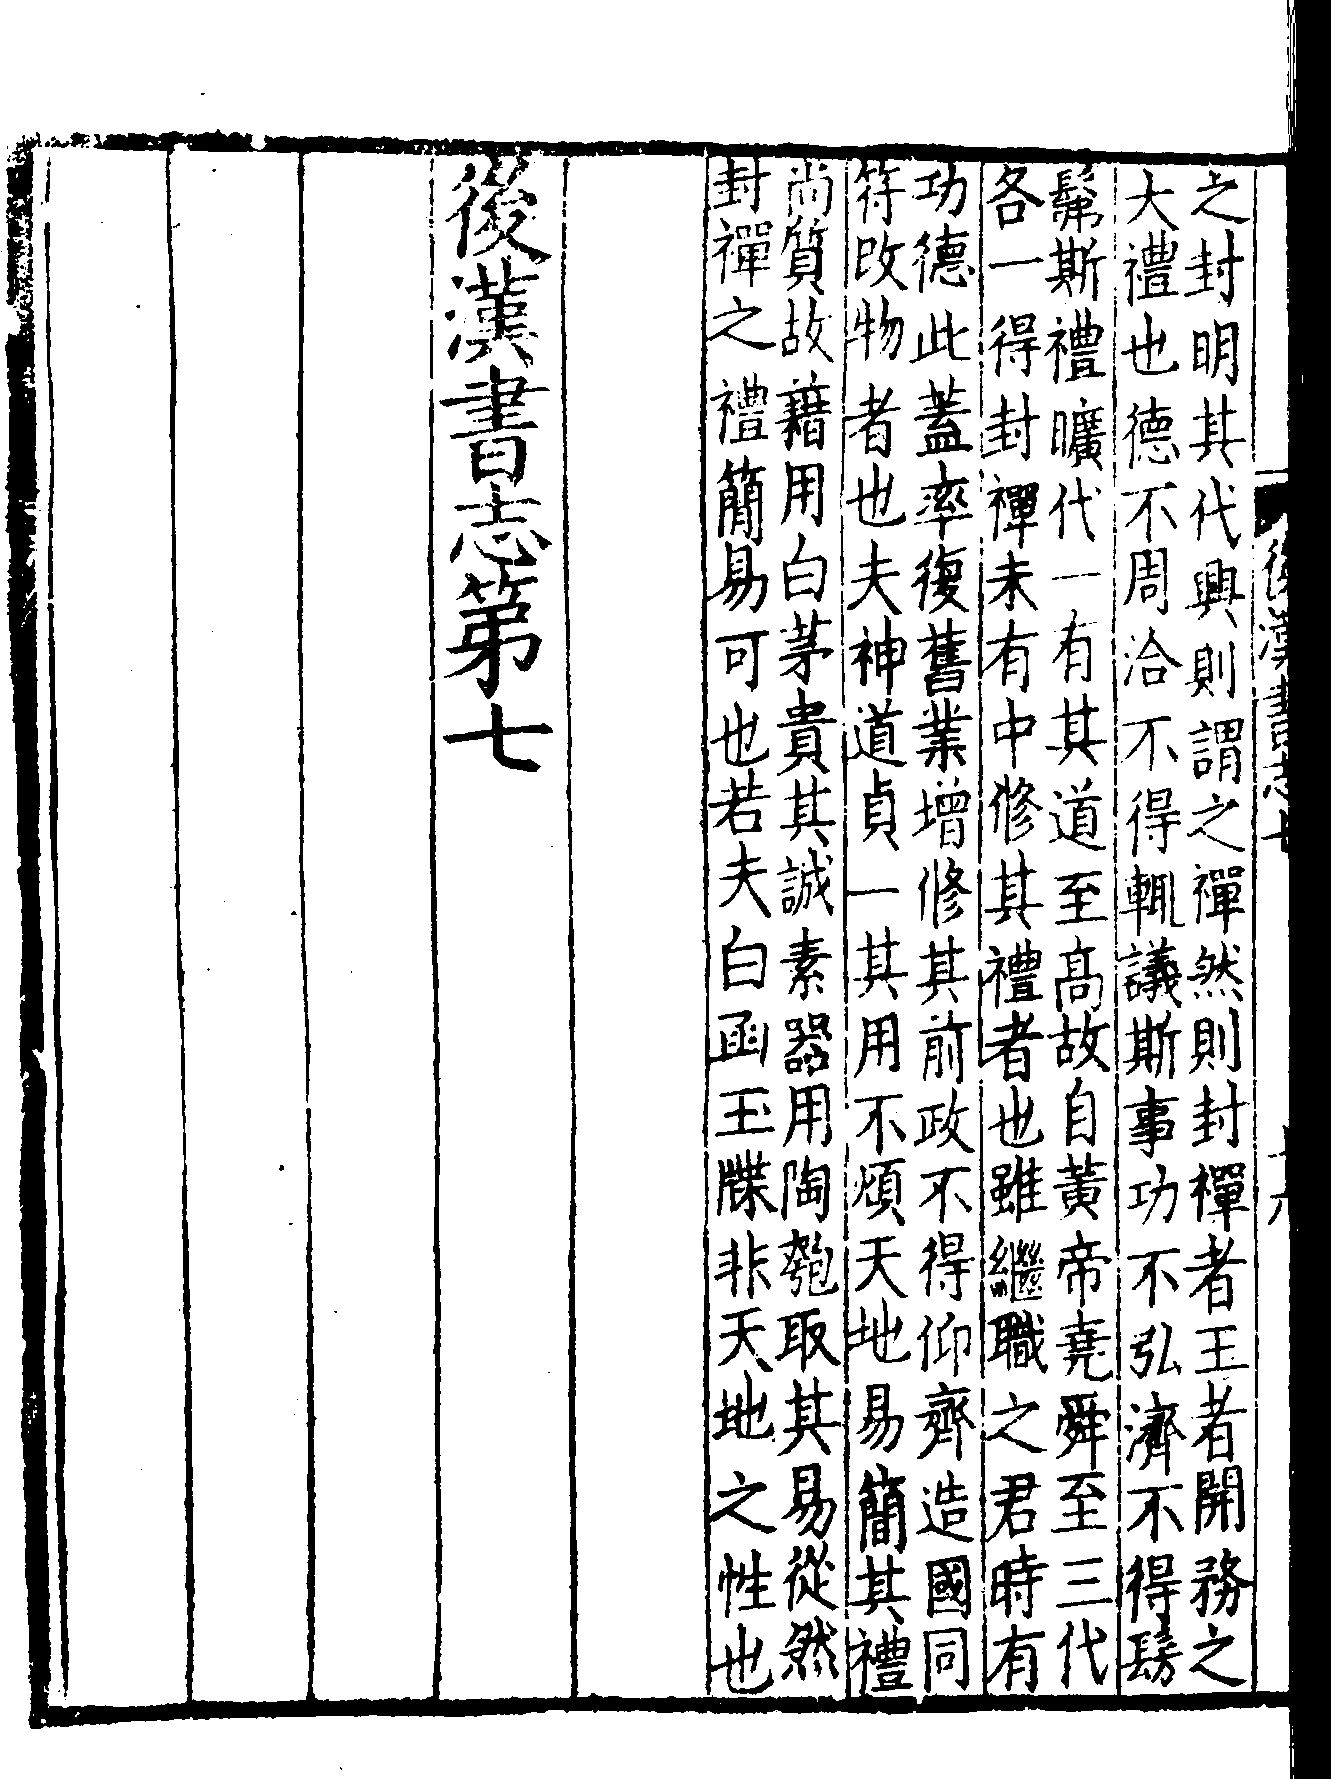 之封明其代興則謂之禪然則封禪者王者開務之
大禮也德不周洽不得輒議斯事功不弘濟不得髣
髴斯禮曠代一有其道至高故自黃帝堯舜至三代
各一得封禪未有中修其禮者也雖繼職之君時有
功德此蓋率復舊業增修其前政不得仰齊造國同
符改物者也夫神道貞一其用不煩天地易簡其禮
尚質故藉用白茅貴其誠素器用陶匏取其易從然
封禪之禮簡易可也若夫白函玉牒非天地之性也
後漢書志第七
後漢書志七